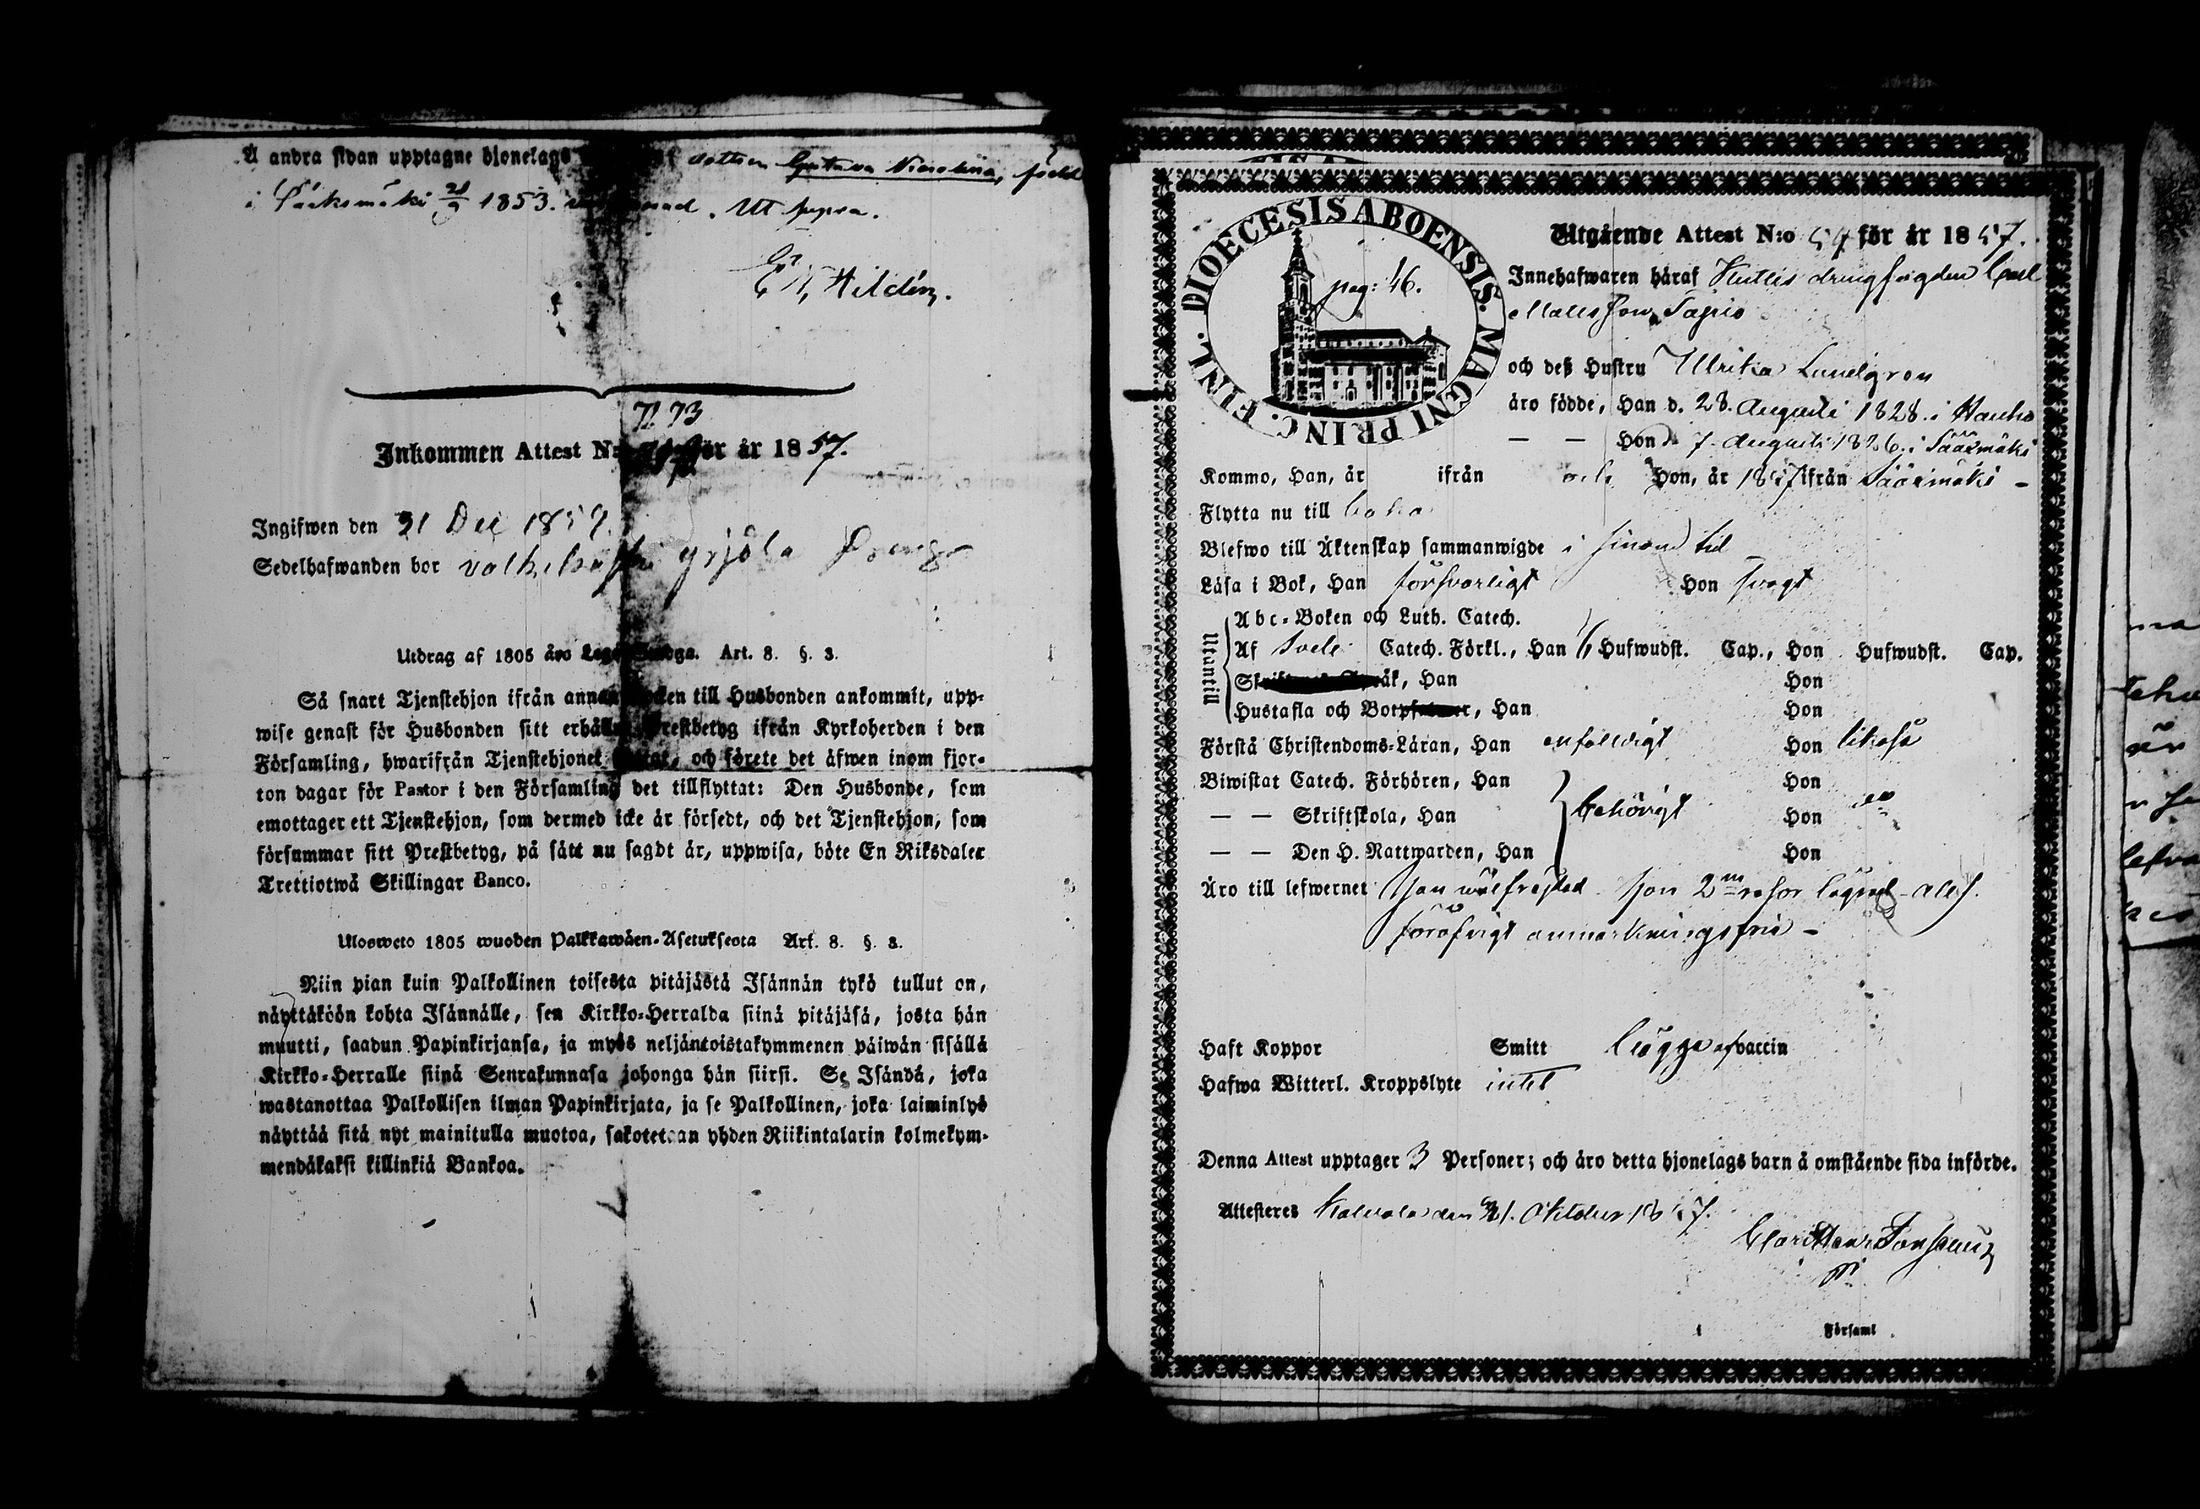 A andra sidan upptagne hjonelags dottern Gustava, född
i Sääksmäki 28/9 1853. Ut supra.
Hildén.
71 73
Inkommen Attest N:o för år 1857.
Ingifwen den 31 Dec 1857.
Sedelhafwanden bor yrjölä
Utdrag af 1805 års Lego-Stadga. Art. 8. §. 3.
Så snart Tjenstehjon ifrån annan socken till Husbonden ankommit, upp-
wise genast för Husbonden sitt erhållne Prestbetyg ifrån Kyrkoherden i den
Församling, hwarifrån Tjenstehjonet flyttat, och förete det äfwen inom fjor-
ton dagar för Pastor i den Församling det tillflyttat: Den Husbonde, som
emottager ett Tjenstehjon, som dermed icke är försedt, och det Tjenstehjon, som
försummar sitt Prestbetyg, på sätt nu sagdt är, uppwisa, böte En Riksdaler
Trettiotwå Skillingar Banco.
Ulosweto 1805 wuoden Palkkawäen-Asetuksesta Art. 8. §. 3.
Niin pian kuin Palkollinen toisesta pitäjästä Isännän tykö tullut on,
näyttäköön kohta Isännälle, sen Kirkko-Herralda siinä pitäjäsä, josta hän
muutti, saadun Papinkirjansa, ja myös neljäntoistakymmenen päiwän sisällä
Kirkko-Herralle siinä Seurakunnasa johonga hän siirsi. Se Isändä, joka
wastanottaa Palkollisen ilman Papinkirjata, ja se Palkollinen, joka laiminlyö
näyttää sitä nyt mainitulla muotoa, sakotetaan yhden Riikintalarin kolmekym-
mendäkaksi killinkiä Bankoa.
DIOECESIS ABOENSIS. MAGNI PRINC. FINL.
pag: 46.
Utgående Attest N:o 54 för år 1857.
Innehafwaren häraf drengfogden Carl
Mattsson
och deß Hustru Ulrika Lundgren
äro födde, Han d. 28. Augusti 1828. i Hauho
— — Hon d 7 Augusti 1826. i Sääxmäki
Kommo, Han, år ifrån och Hon, år 1857 ifrån Sääxmäki –
Flytta nu till
Blefwo till Äktenskap sammanwigde i sinom tid
Läsa i Bok, Han försvarligt Hon svagt
Utantill
Abc-Boken och Luth. Catech.
Af Svebe. Catech. Förkl., Han 6 Hufwudst. Cap., Hon Hufwudst. Cap.
Skriftenes Språk, Han Hon
Hustafla och Botpsalmer, Han Hon
Förstå Christendoms-Läran, Han enfaldigt Hon likaså
Biwistat Catech. Förhören, Han Hon
— — Skriftskola, Han behörigt Hon
— — Den H. Nattwarden, Han Hon
Äro till lefwernet Han wälfrejdad Hon 2 för lägrad
föröfrigt anmärkningsfria –
Haft Koppor Smitt Begge af vaccin
Hafwa Witterl. Kroppslyte intet
Denna Attest upptager 3 Personer; och äro detta hjonelags barn å omstående sida införde.
Attesteres Kalvola den 31. Oktober 1857.
Församl